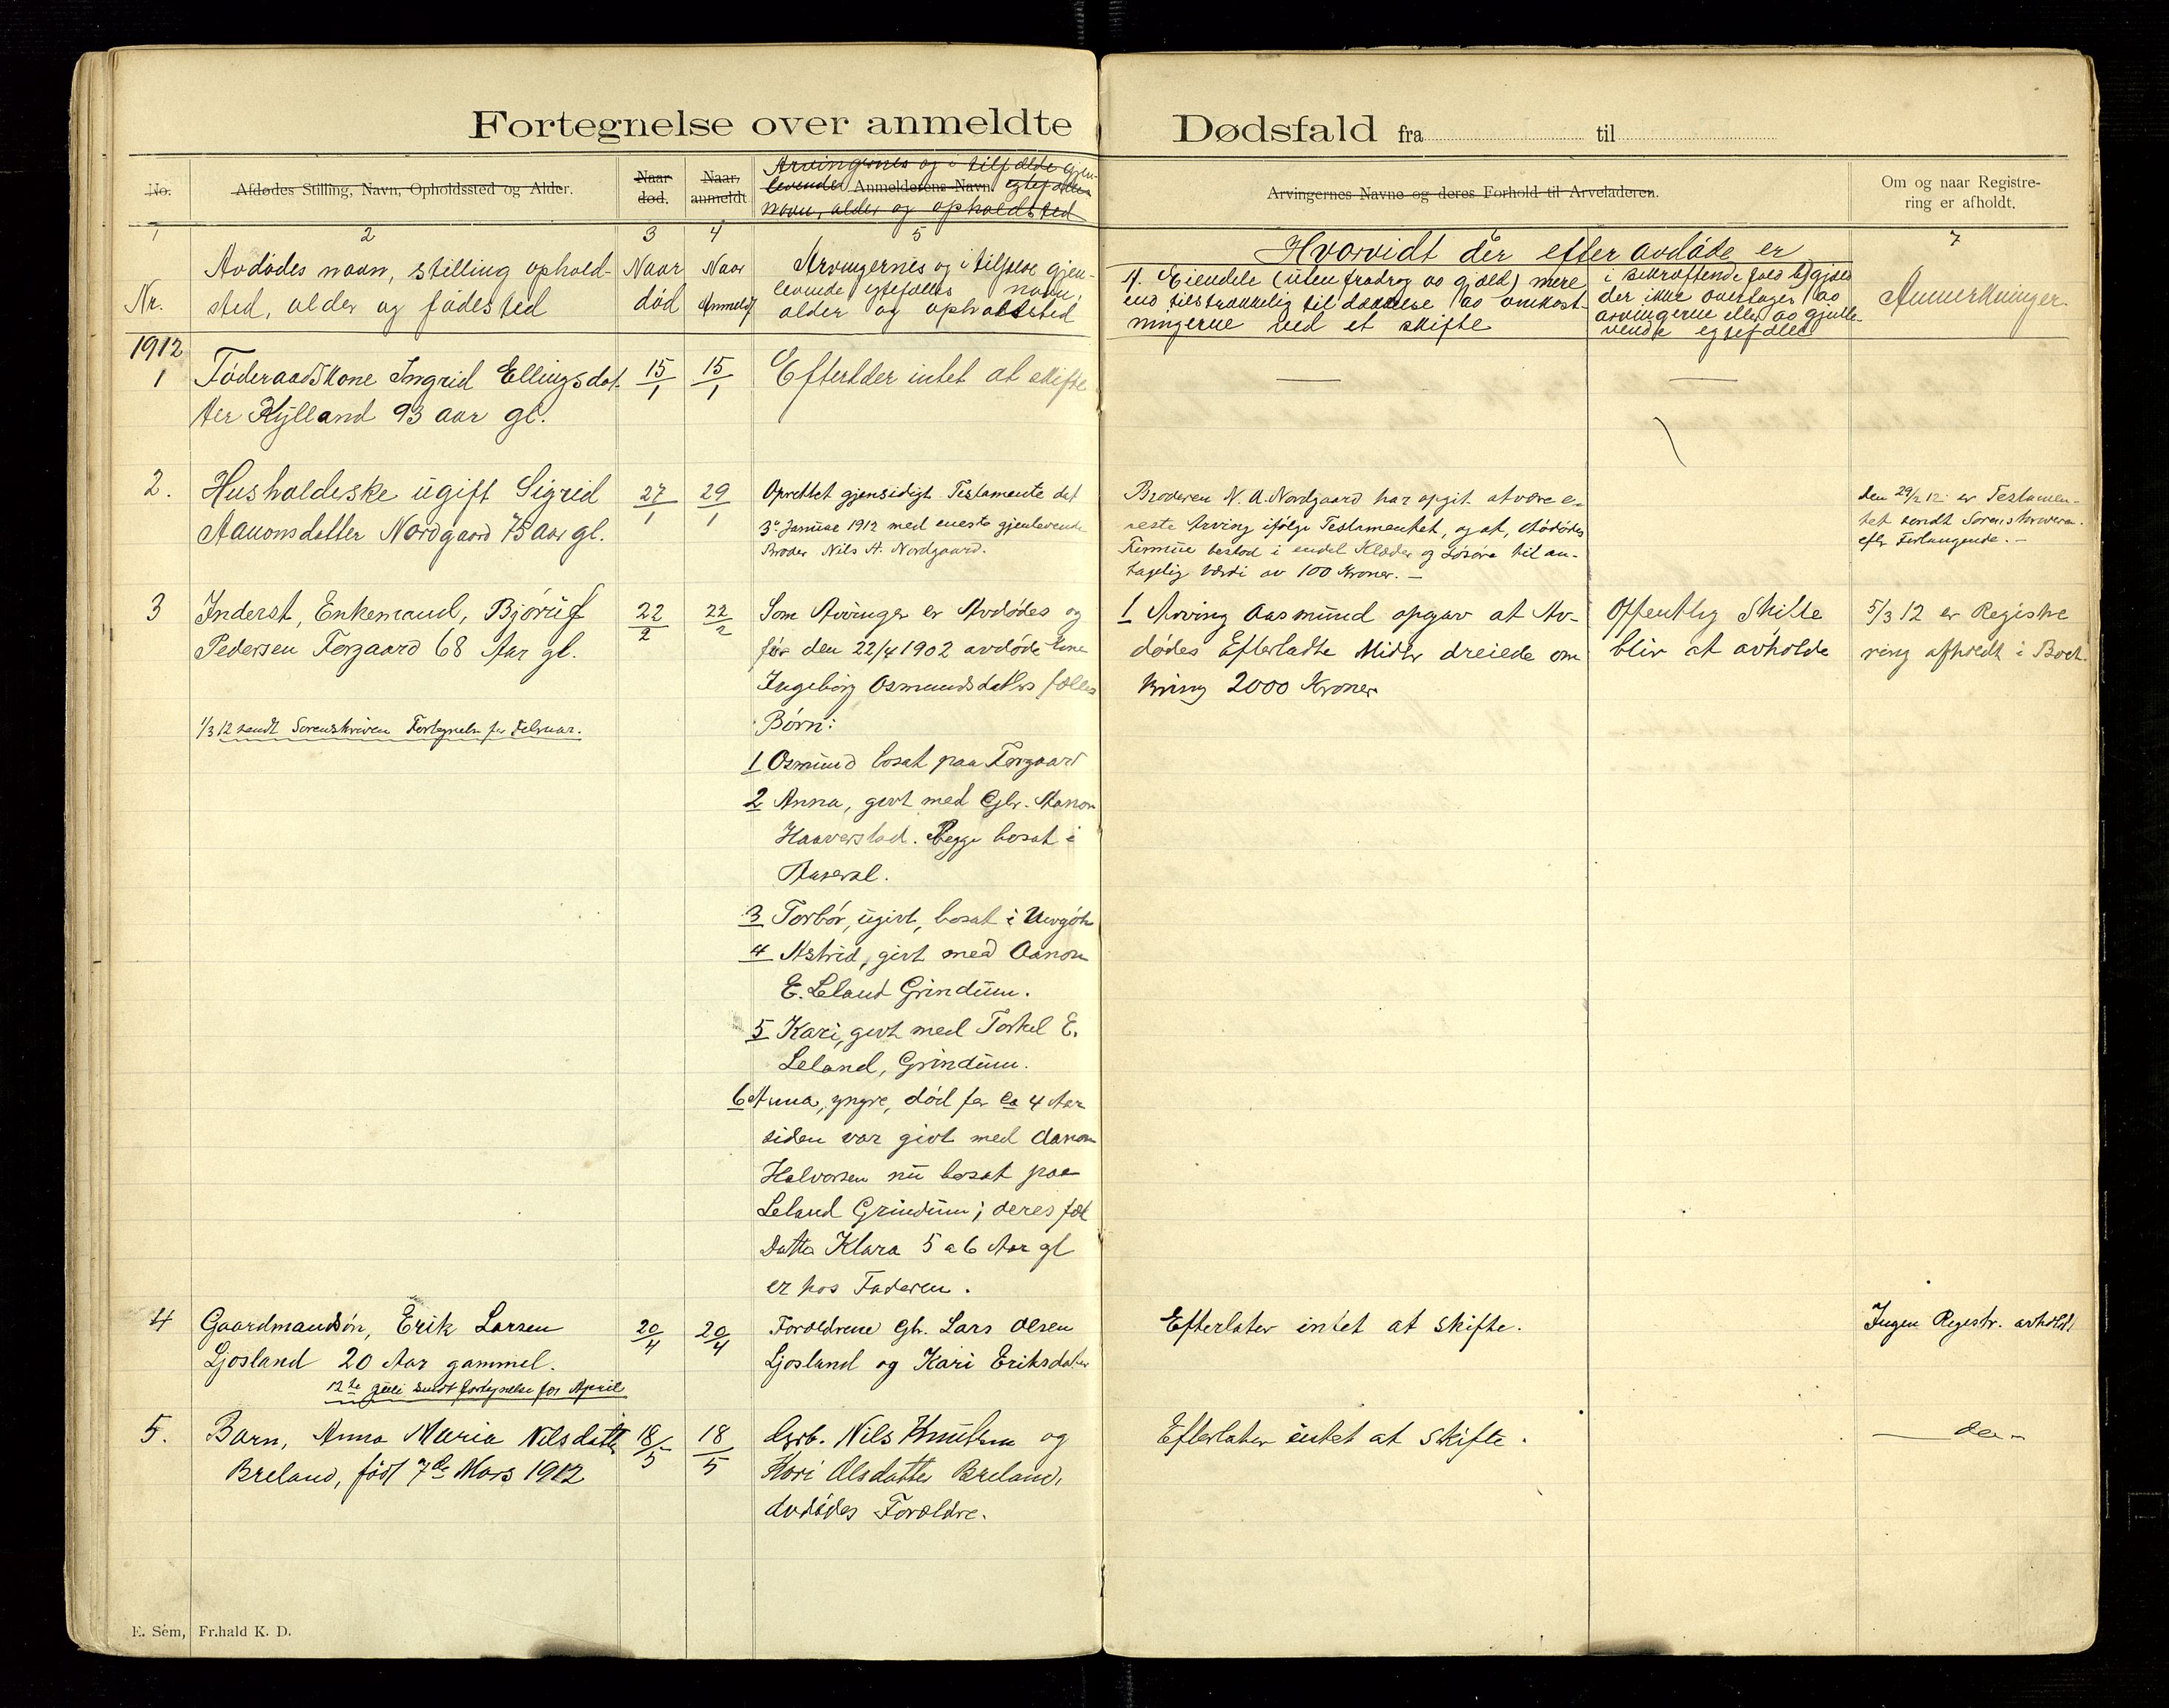 Fortegnelse over anmeldte Dødsfald fra til
No. Afdødes Stilling, Navn, Opholdssted og Alder. Naar død. Naar anmeldt
Arvingernes og i tilfælde gjen-
levender Anmelderens Navn. egtefælles
navn, alder og opholdsted
Arvingernes Navne og deres Forhold til Arveladeren.
Om og naar Registre-
ring er afholdt.
1 2 3 4 5 6 7
Nr.
Avdødes navn, stilling ophold-
sted, alder og fødested
Naar
død
Naar
Anmeldt
Arvingernes og i tilfælde gjen-
levende egtefælles navn,
alder og opholdsted
Hvorvidt der efter avdøde er
1. Eiendele (uten fradrag av gjæld) mere
end tilstrækkelig til dækkelse av omkost-
ningerne ved et skifte
i bekræftende fald 2) gjæld
der ikke overtages av
arvingerne eller av gjenle-
vende egtefælle
Anmerkninger.
1912
1
Føderaadskone Ingrid Ellingsdat-
ter Kylland 93 aar gl.
15/1
15/1
Efterlader intet at skifte
2.
Husholderske ugift Sigrid
Aanonsdatter Nordgaard 75 aar gl.
27/1
29/1
Oprettet gjensidigt Testamente dat
3die Januar 1912 med eneste gjenlevende
Broder Nils A. Nordgaard.
Broderen N. A. Nordgaard har opgit at være e-
neste Arving ifølge Testamentet, og at Avdødes
Formue bestod i endel Klæder og Løsøre til an-
tagelig Værdi av 100 Kroner. —
den 29/2 12 er Testamen-
tet sendt Sorenskriveren
efter Forlangende. —
3
Inderst, Enkemand, Bjørulf
Pedersen Forgaard 68 Aar gl.
22/2
22/2
Som Arvinger er Avdødes og
før den 22/4 1902 avdøde Kone
Ingeborg Osmundsdatters fælles
Børn:
1 Osmund bosat paa Forgaard
2 Anna, givt med Gbr. Aanon
Haaverstad. Begge bosat i
Aaseral.
3 Torbør, ugivt, bosat i
4 Astrid, givt med Aanon
E. Leland Grindum.
5 Kari, givt med Torkel E.
Leland, Grindum.
6 Anna, yngre, død for ca 4 Aar
siden var givt med Aanon
Halvorsen nu bosat paa
Leland Grindum; deres fæl
Datter Klara 5 a 6 Aar gl
er hos Faderen.
1 Arving Aasmund opgav at Av-
dødes Efterladte Midler dreiede om
kring 2000 Kroner
Offentlig Skifte
blir at avholde
5/3 12 er Registre
ring afholdt i Boet.
1/3 12 sendt Sorenskriveren Fortegnelse for Februar.
4
Gaardmandsøn, Erik Larsen
Ljosland 20 Aar gammel.
12te Juli sendt fortegnelse for April
20/4
20/4
Forældrene Gbr. Lars Olsen
Ljosland og Kari Eriksdatter
Efterlater intet at skifte.
Ingen Registr. avholdt
5.
Barn, Anna Maria Nilsdatter
Breland, født 7de Mars 1912
18/5
18/5
Grb. Nils Knutsen og
Kari Olsdatter Breland,
Avdødes Forældre.
Efterlater intet at skifte.
— do —
E. Sem, Fr.hald K. D.